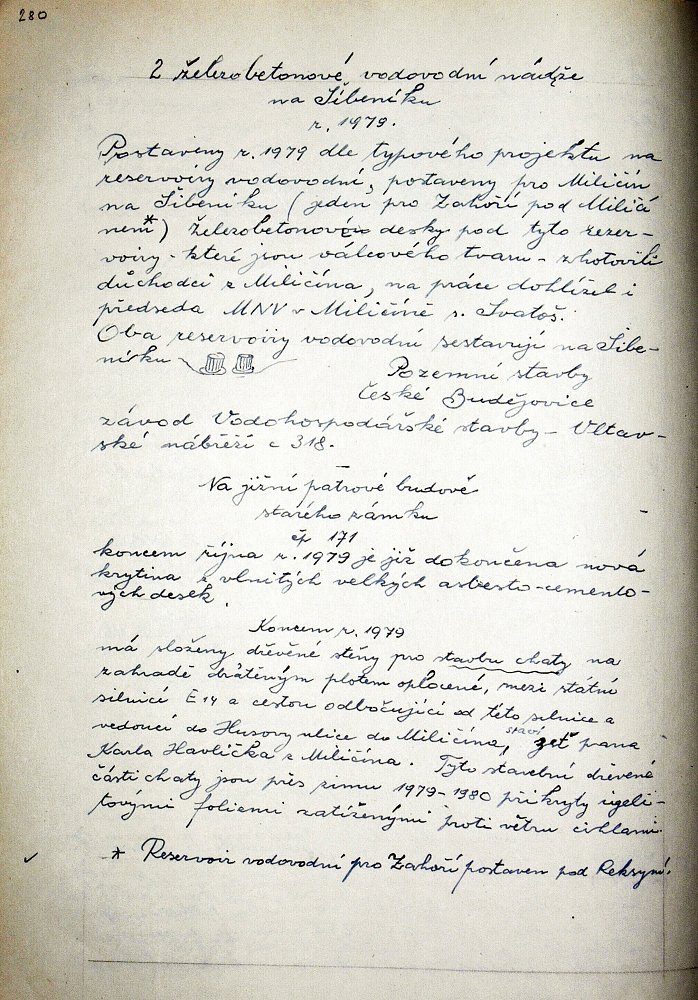 280
2 železobetonové vodovodní nádrže
na Šibeníku
r. 1979.
Postaveny r. 1979 dle typového projektu na
reservoiry vodovodní, postaveny pro Miličín
na Šibeníku (jeden pro Zahoří pod Miličí
nem*) železobetonové desky pod tyto rezer-
voiry - které jsou válcového tvaru - zhotovili
důchodci z Miličína, na práce dohlížel i
předseda MNV v Miličíně s. Svatoš.
Oba reservoiry vodovodní sestavují na Šibe-
níku
Pozemní stavby
České Budějovice
závod Vodohospodářské stavby - Vltav-
ské nábřeží č 318.
Na jižní patrové budově
starého zámku
čp 171
koncem října r. 1979 je již dokončena nová
krytina z vlnitých velkých asbesto-cemento-
vých desek.
Koncem r. 1979
má složeny dřevěné stěny pro stavbu chaty na
zahradě drátěným plotem oplocené, mezi státní
silnicí E 14 a cestou odbočující od této silnice a
vedoucí do Husovy ulice do Miličína, staví zeť pana
Karla Havlíčka z Miličína. Tyto stavební dřevěné
části chaty jsou přes zimu 1979-1980 přikryty igeli-
tovými foliemi zatíženými proti větru cihlami.
* Reservoir vodovodní pro Zahoří postaven pod Reksyní.